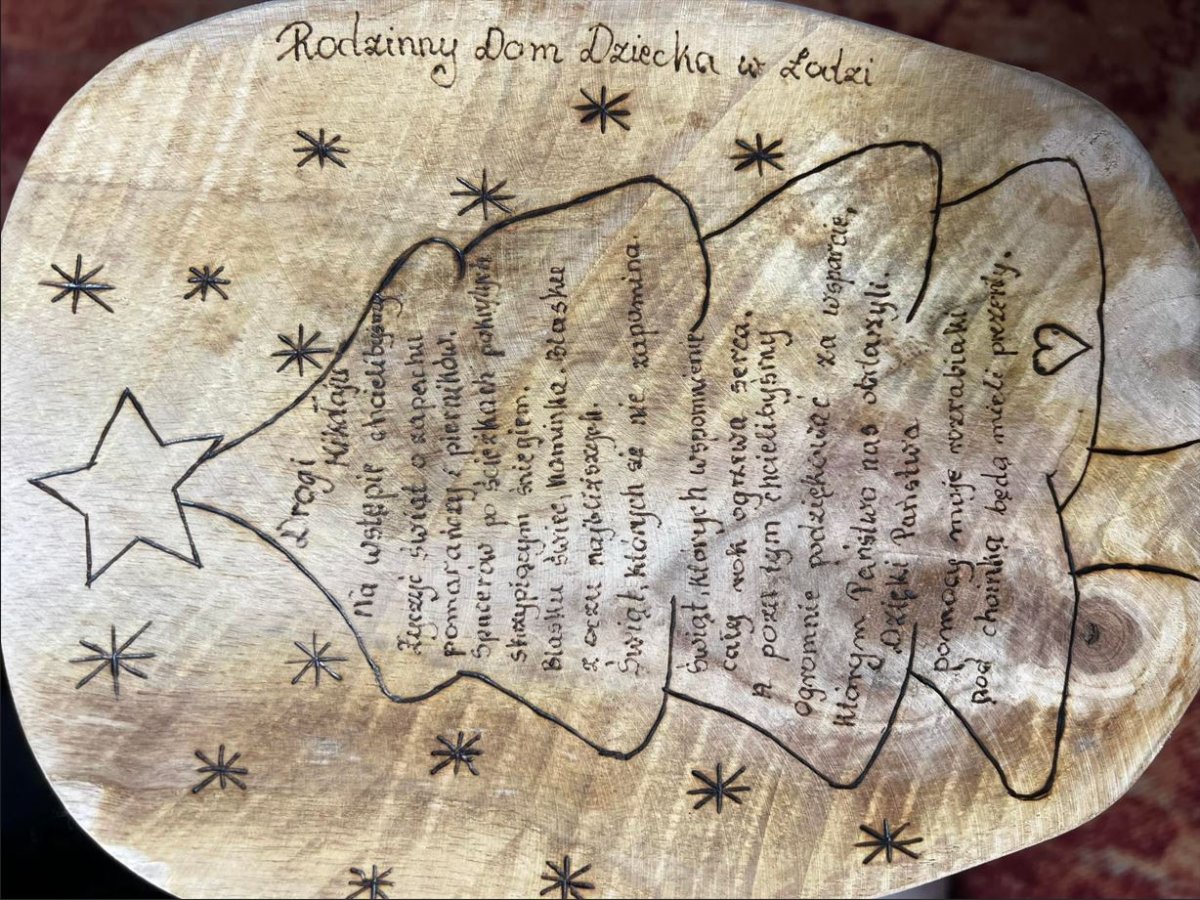 Rodzinny Dom Dziecka w Łodzi
Drogi
Mikołaju
Na wstępie chcielibyśmy
życzyć świąt o zapachu
pomarańczy i pierników.
Spacerów po ścieżkach pokrytych
skrzypiącym śniegiem.
Blasku świec, kominka. Blasku
z oczu najbliższych.
Świąt, których się nie zapomina.
Świąt, których wspomnienie
cały rok ogrzewa serca.
A poza tym chcielibyśmy
ogromnie podziękować za wsparcie,
którym Państwo nas obdarzyli.
Dzięki Państwa
pomocy moje rozrabiaki
pod choinką będą mieli prezenty.